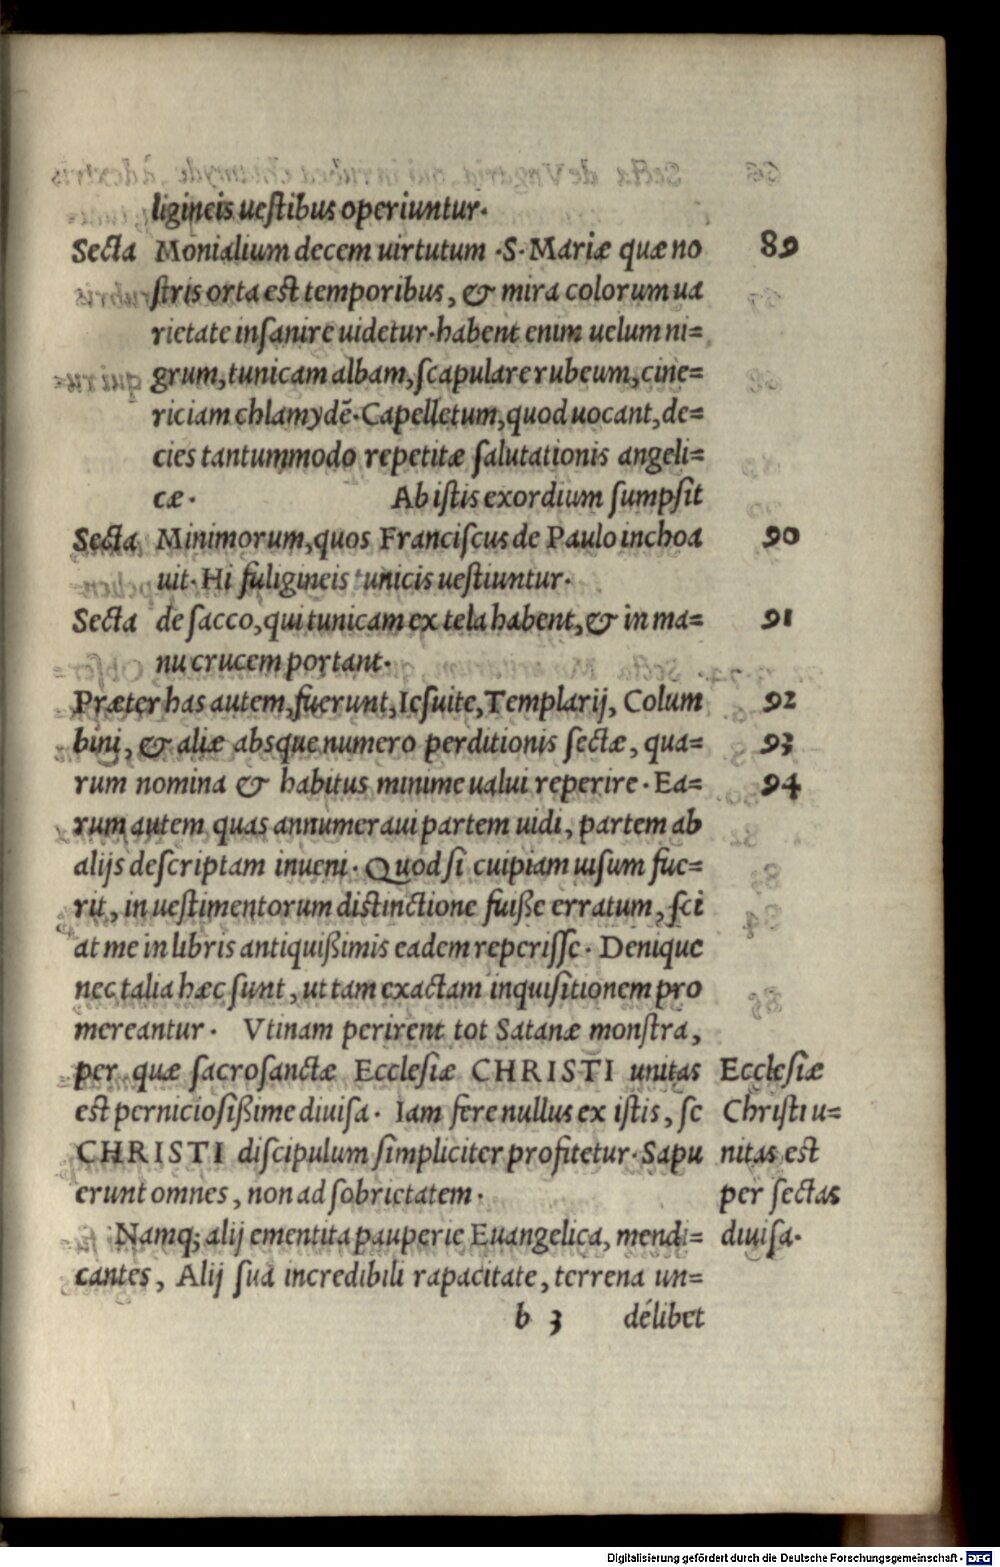 ligineis uestibus operiuntur.
Secta Monialium decem uirtutum .S. Mariæ quæ no 89
stris orta est temporibus, & mira colorum ua
rietate insanire uidetur. habent enim uelum ni=
grum, tunicam albam, scapulare rubeum, cine=
riciam chlamydẽ. Capelletum, quod uocant, de=
cies tantummodo repetitæ salutationis angeli=
cæ. Ab istis exordium sumpsit
Secta Minimorum, quos Franciscus de Paulo inchoa 90
uit. Hi fuligineis tunicis uestiuntur.
Secta de sacco, qui tunicam ex tela habent, & in ma= 91
nu crucem portant.
Præter has autem, fuerunt, Iesuite, Templarij, Colum 92
bini, & aliæ absque numero perditionis sectæ, qua= 93
rum nomina & habitus minime ualui reperire. Ea= 94
rum autem quas annumeraui partem uidi, partem ab
alijs descriptam inueni. Quod si cuipiam uisum fue=
rit, in uestimentorum distinctione fuiße erratum, sci
at me in libris antiquißimis eadem reperisse. Denique
nec talia hæc sunt, ut tam exactam inquisitionem pro
mereantur. Vtinam perirent tot Satanæ monstra,
per quæ sacrosanctæ Ecclesiæ CHRISTI unitas
est perniciosißime diuisa. Iam fere nullus ex istis, se
CHRISTI discipulum simpliciter profitetur. Sapu
erunt omnes, non ad sobrietatem.
Namq; alij ementita pauperie Euangelica, mendi=
cantes, Alij sua incredibili rapacitate, terrena un=
Ecclesiæ
Christi u=
nitas est
per sectas
diuisa.
b 3 délibet
Digitalisierung gefördert durch die Deutsche Forschungsgemeinschaft - DFG